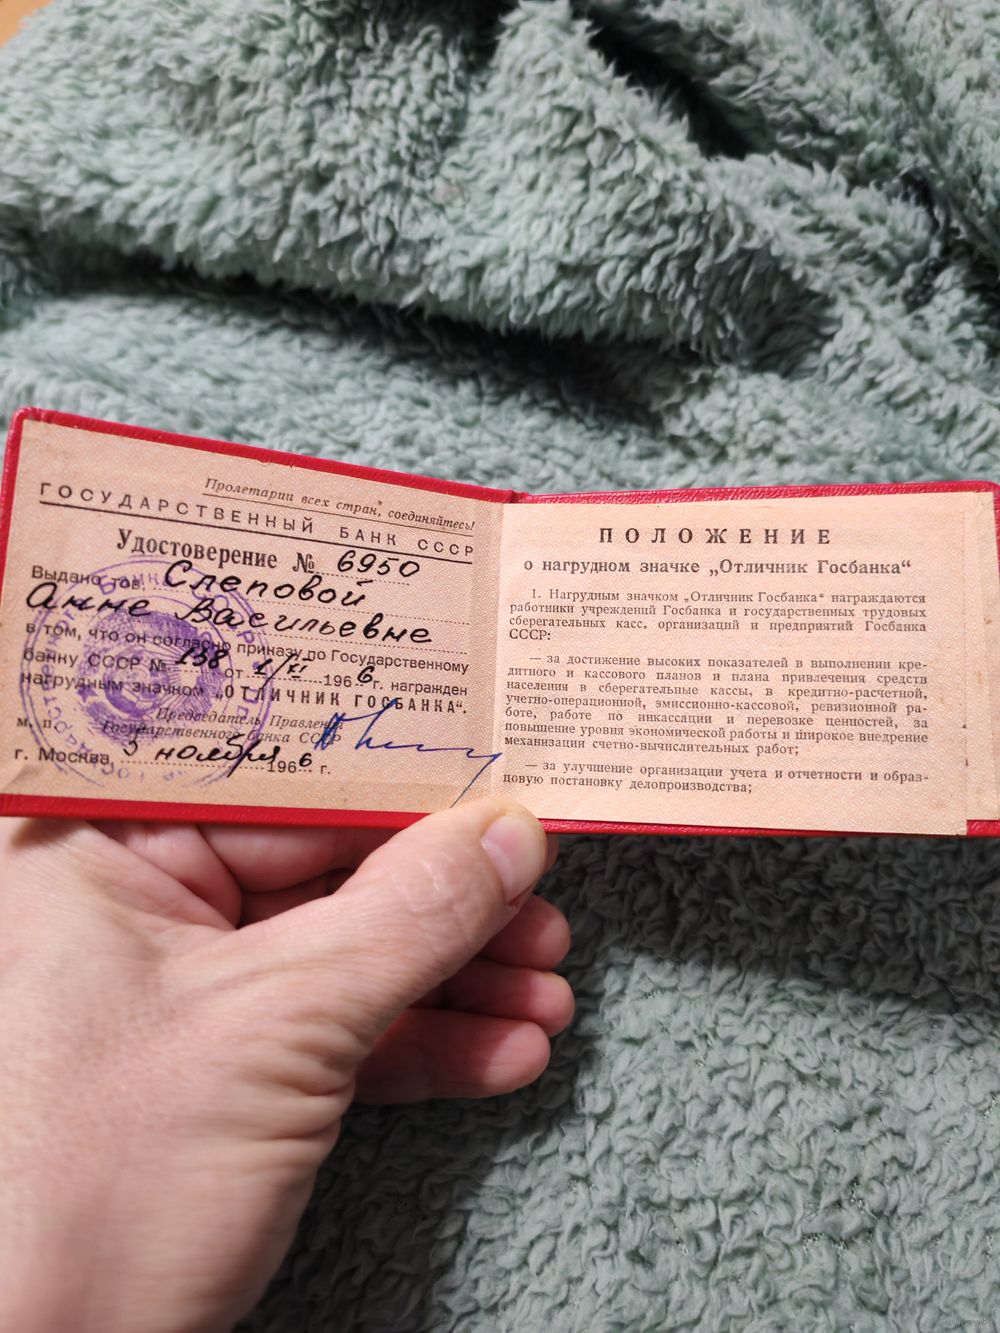 Пролетарии всех стран, соединяйтесь!
ГОСУДАРСТВЕННЫЙ БАНК СССР
Удостоверение № 6950
Выдано тов. Слеповой
Анне Васильевне
в том, что он согласно приказу по Государственному
банку СССР № 138 от 1/XI 1966 г. награжден
нагрудным значком „ОТЛИЧНИК ГОСБАНКА“.
Председатель Правления
м. п. Государственного банка СССР
г. Москва, 3 ноября 1966 г.
ПОЛОЖЕНИЕ
о нагрудном значке „Отличник Госбанка“
1. Нагрудным значком „Отличник Госбанка“ награждаются
работники учреждений Госбанка и государственных трудовых
сберегательных касс, организаций и предприятий Госбанка
СССР:
— за достижение высоких показателей в выполнении кре-
дитного и кассового планов и плана привлечения средств
населения в сберегательные кассы, в кредитно-расчетной,
учетно-операционной, эмиссионно-кассовой, ревизионной ра-
боте, работе по инкассации и перевозке ценностей, за
повышение уровня экономической работы и широкое внедрение
механизации счетно-вычислительных работ;
— за улучшение организации учета и отчетности и образ-
цовую постановку делопроизводства;